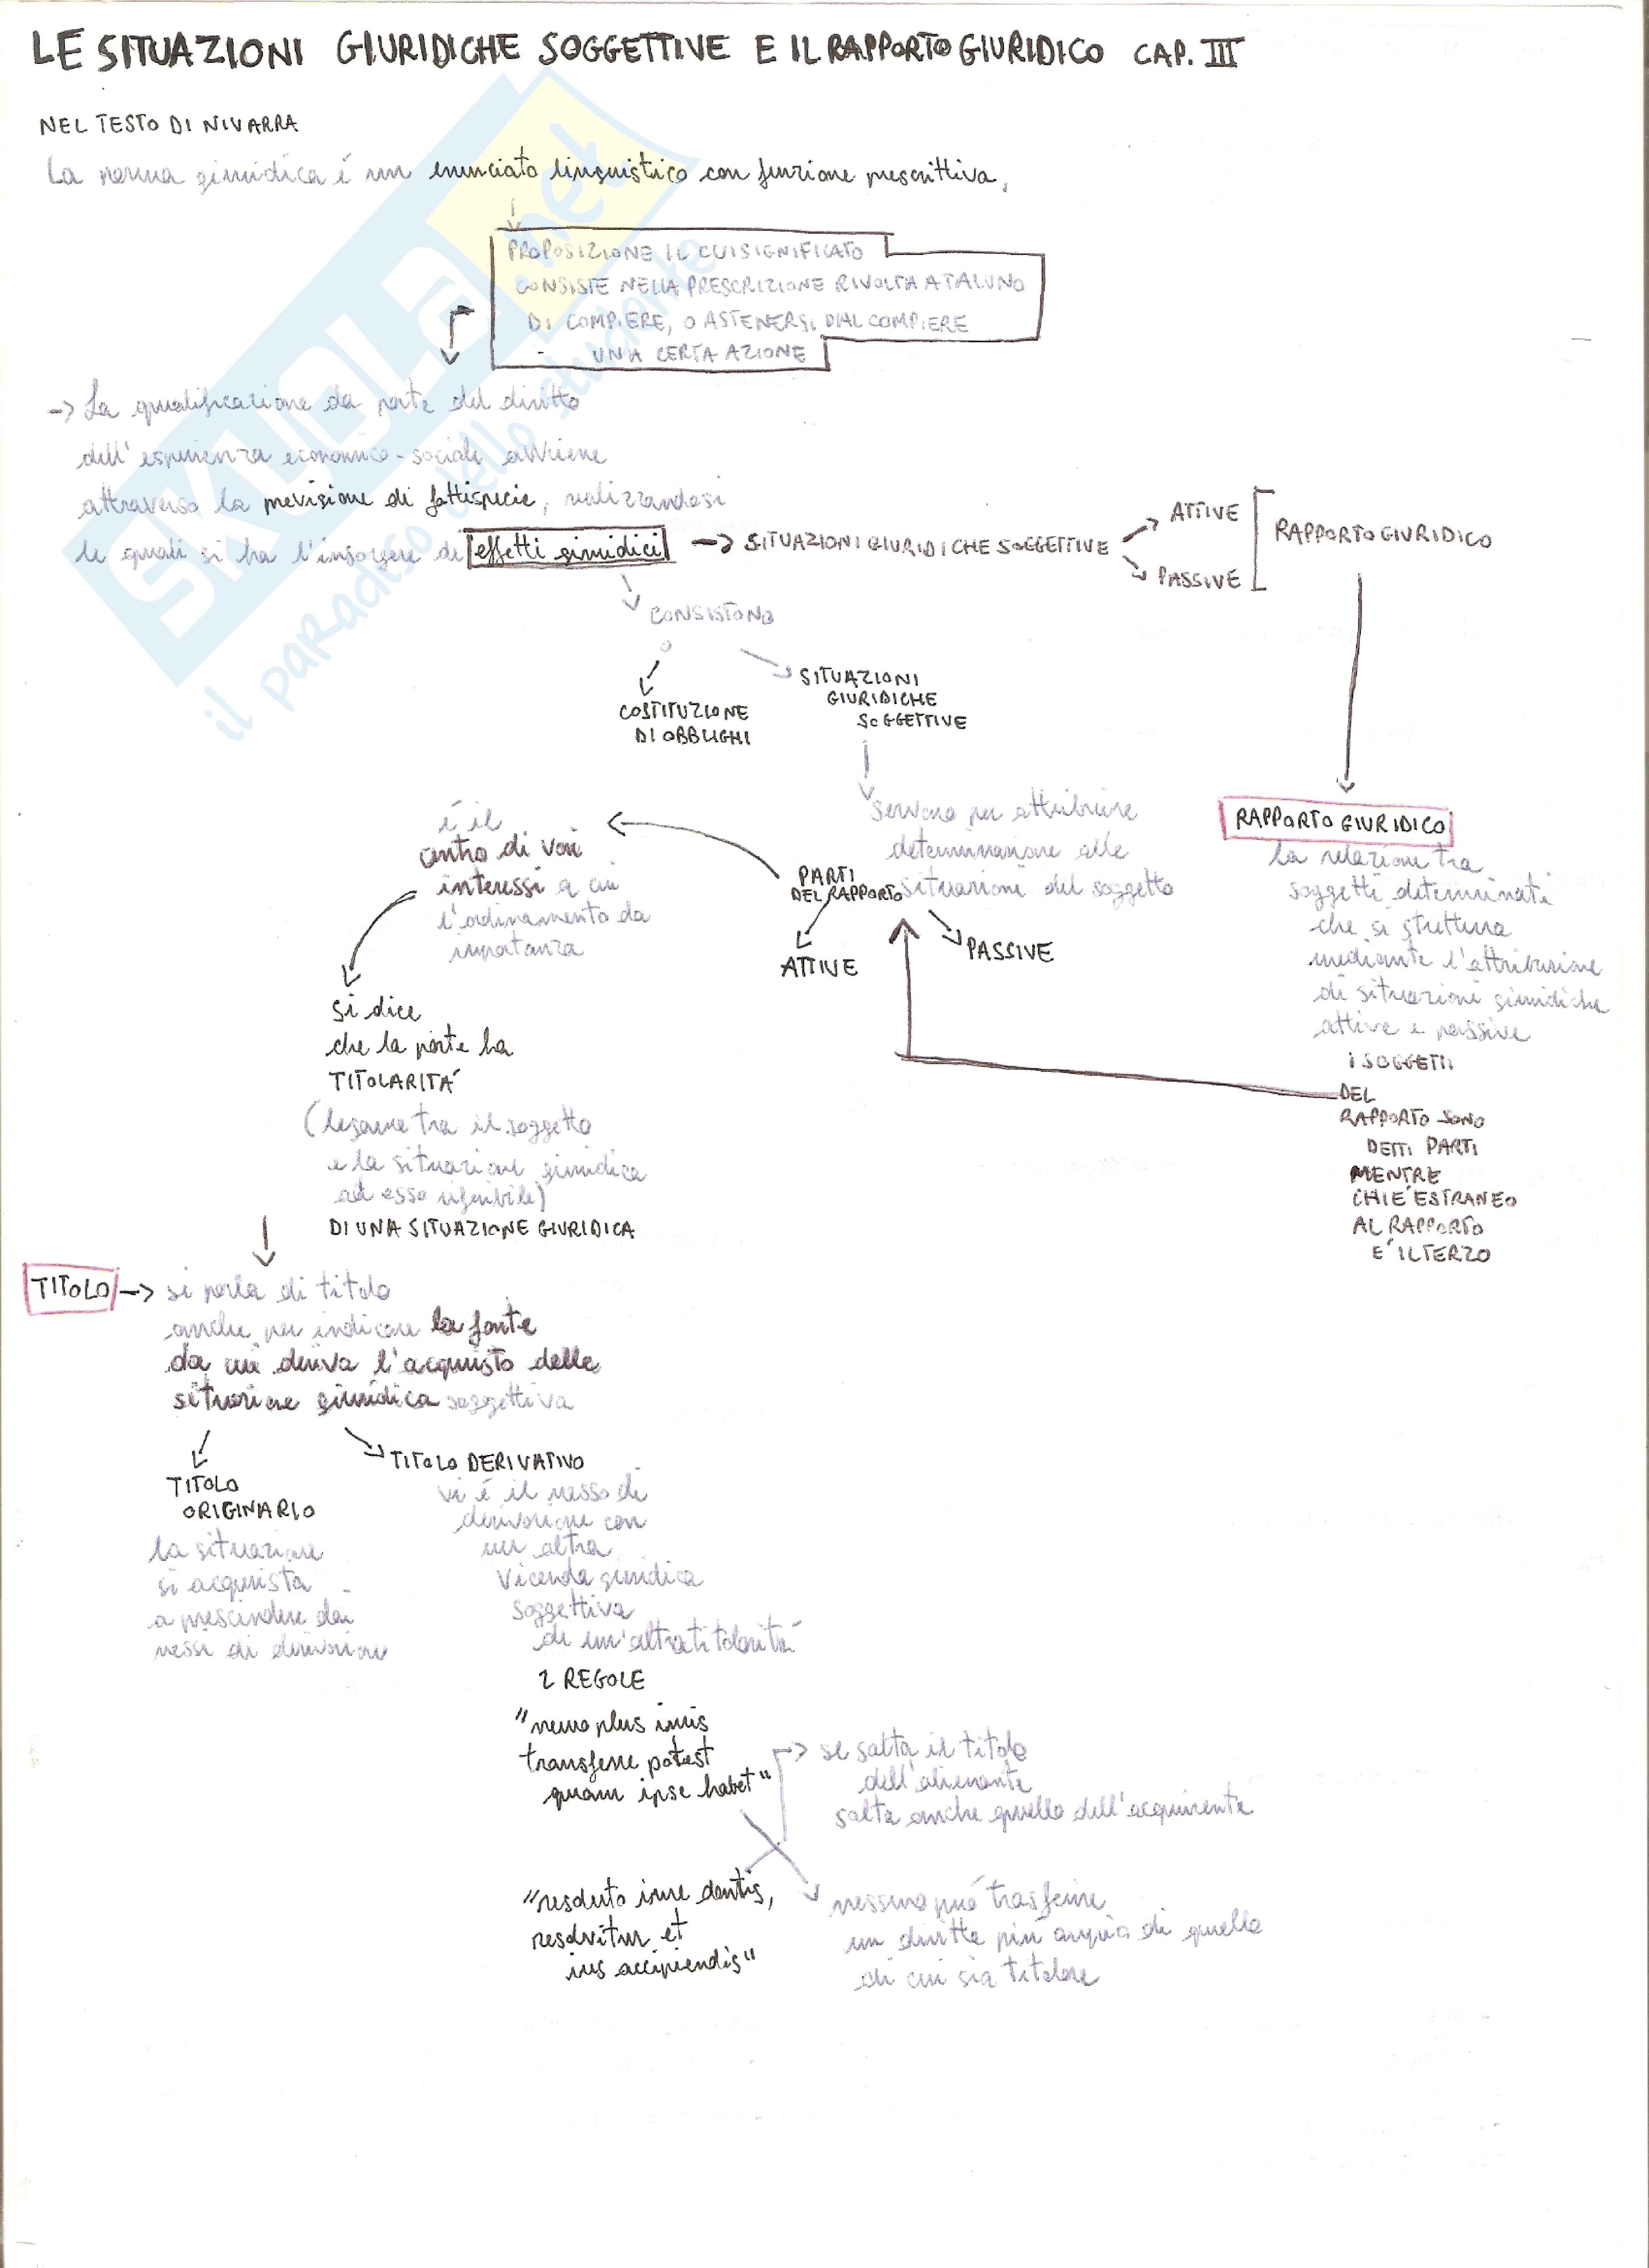 LE SITUAZIONI GIURIDICHE SOGGETTIVE E IL RAPPORTO GIURIDICO CAP. III
NEL TESTO DI NIVARRA
La norma giuridica é un enunciato linguistico con funzione prescrittiva,
PROPOSIZIONE IL CUI SIGNIFICATO
CONSISTE NELLA PRESCRIZIONE RIVOLTA A TALUNO
DI COMPIERE, O ASTENERSI DAL COMPIERE
UNA CERTA AZIONE
-> La qualificazione da parte del diritto
dell'esperienza economico-sociale avviene
attraverso la previsione di fattispecie, realizzandosi
le quali si ha l'insorgere di effetti giuridici -> SITUAZIONI GIURIDICHE SOGGETTIVE
ATTIVE
PASSIVE
RAPPORTO GIURIDICO
CONSISTONO
COSTITUZIONE
DI OBBLIGHI
SITUAZIONI
GIURIDICHE
SOGGETTIVE
servono per attribuire
determinazione alle
situazioni del soggetto
PARTI
DEL RAPPORTO
ATTIVE
PASSIVE
é il
centro di vari
interessi a cui
l'ordinamento da
importanza
RAPPORTO GIURIDICO
la relazione tra
soggetti determinati
che si struttura
mediante l'attribuzione
di situazioni giuridiche
attive e passive
I SOGGETTI
DEL
RAPPORTO SONO
DETTI PARTI
MENTRE
CHI E' ESTRANEO
AL RAPPORTO
E' IL TERZO
si dice
che la parte ha
TITOLARITA'
(legame tra il soggetto
e la situazione giuridica
ad esso riferibile)
DI UNA SITUAZIONE GIURIDICA
TITOLO -> si parla di titolo
anche per indicare la fonte
da cui deriva l'acquisto delle
situazione giuridica soggettiva
TITOLO
ORIGINARIO
la situazione
si acquista
a prescindere dai
nessi di derivazione
TITOLO DERIVATIVO
vi é il nesso di
derivazione con
un altra
vicenda giuridica
soggettiva
di un'altra titolarità
2 REGOLE
"nemo plus iuris
transferre potest
quam ipse habet"
-> se salta il titolo
dell'alienante
salta anche quello dell'acquirente
"resoluto iure dantis,
resolvitur et
ius accipiendis"
nessuno può trasferire
un diritto più ampio di quello
di cui sia titolare
SKUOLA.net
il paradiso dello studente